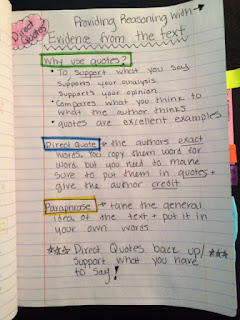 Direct
Quotes
Providing Reasoning with →
Evidence from the text
Why use quotes?
• To support what you say
supports your analysis
supports your opinion
• Compares what you think to
what the author thinks
• quotes are excellent examples
Direct Quote → the authors exact
words. You copy them word for
word but you need to make
sure to put them in quotes +
give the author credit
Paraphrase → take the general
idea of the text + put it in
your own words
☆☆☆ Direct Quotes back up/ ☆☆☆
support what you have
to say!